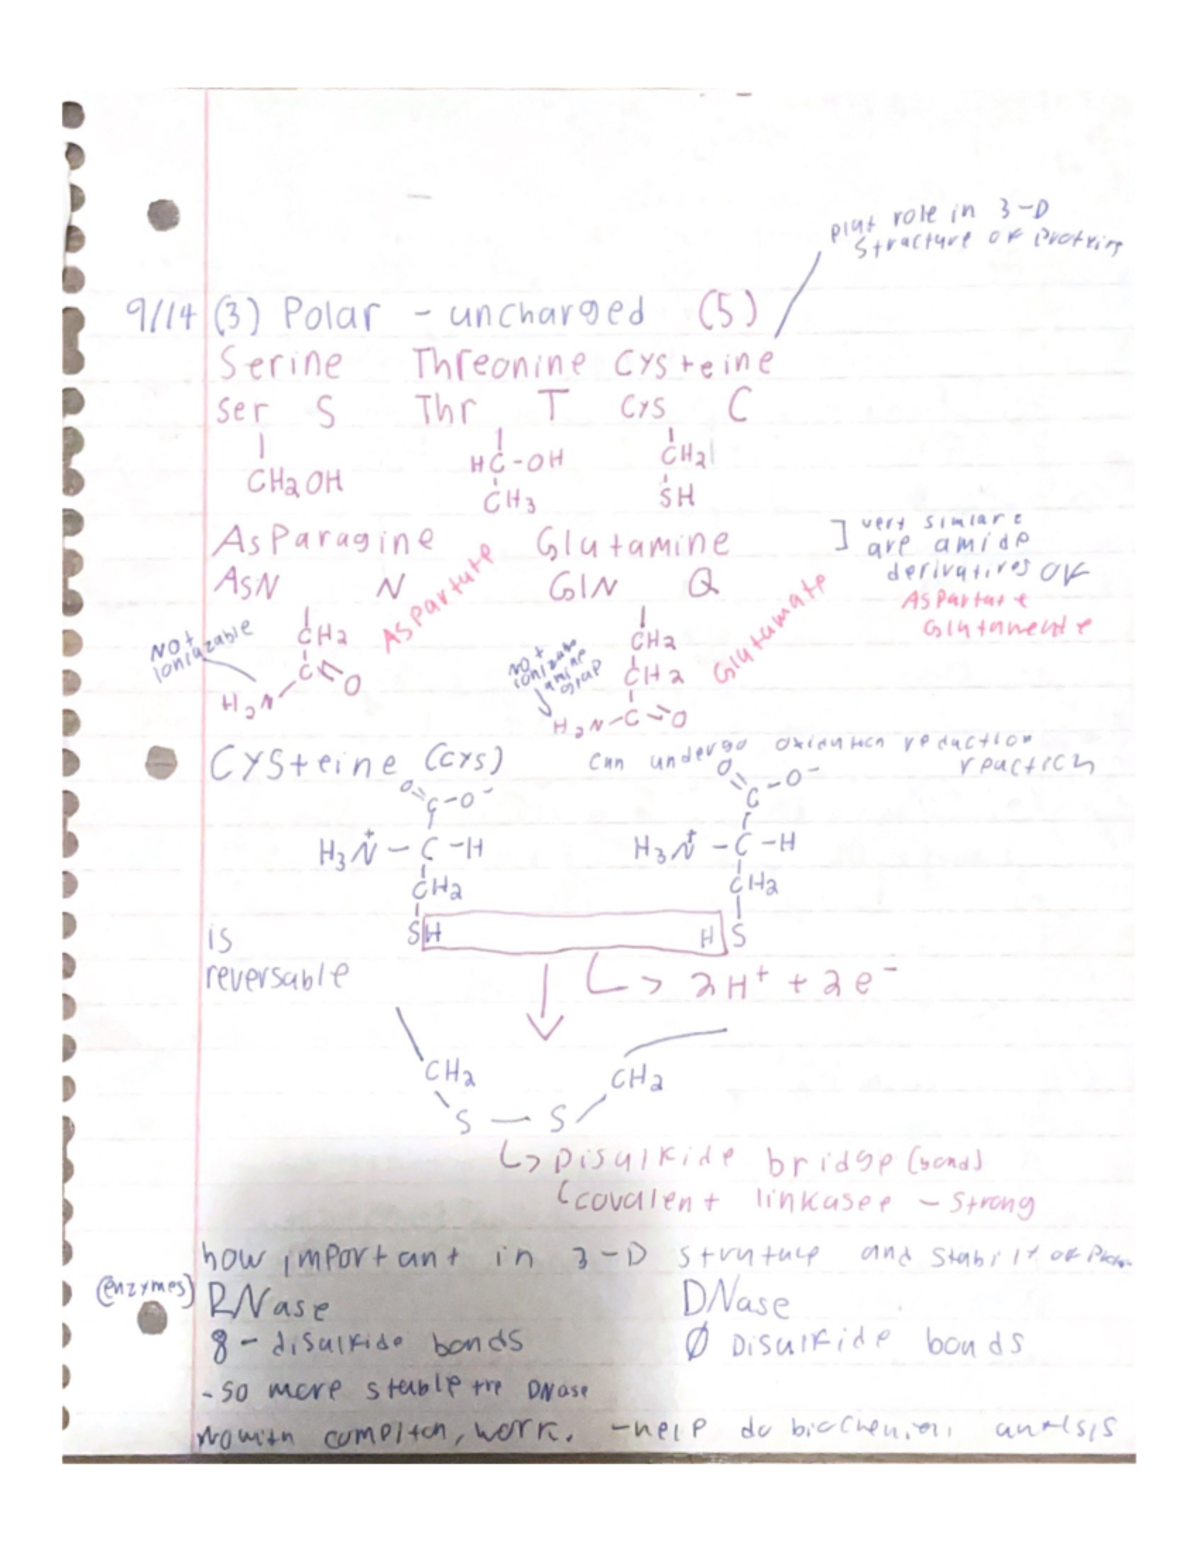 play role in 3-D
structure of Proteins
9/14 (3) Polar - uncharged (5)
Serine Threonine Cysteine
Ser S Thr T Cys C
CH2OH HC-OH CH2
CH3 SH
Asparagine Glutamine ] very similar &
are amide
derivatives of
AsN N Aspartate GlN Q Glutamate
Aspartate
Glutamate
Not
ionizable
CH2
C=O
H2N
Not
ionizable
amine
group
CH2
CH2
H2N-C=O
Cysteine (Cys) Can undergo oxidation reduction
reaction
O=C-O- O=C-O-
H3N+ - C - H H3N+ - C - H
CH2 CH2
SH H S
is
reversable
↳ 2H+ + 2e-
CH2 CH2
S — S
↳ Disulfide bridge (bond)
(covalent linkasee - Strong
how important in 3-D struture and stability of
(enzymes) RNase DNase
8 - disulfide bonds Ø Disulfide bonds
- so more stable DNase
work. - help do analsis